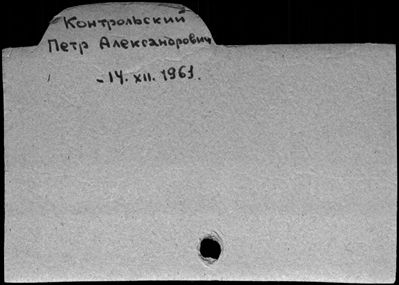 Контрольский
Петр Александрович
- 14. XII. 1961.